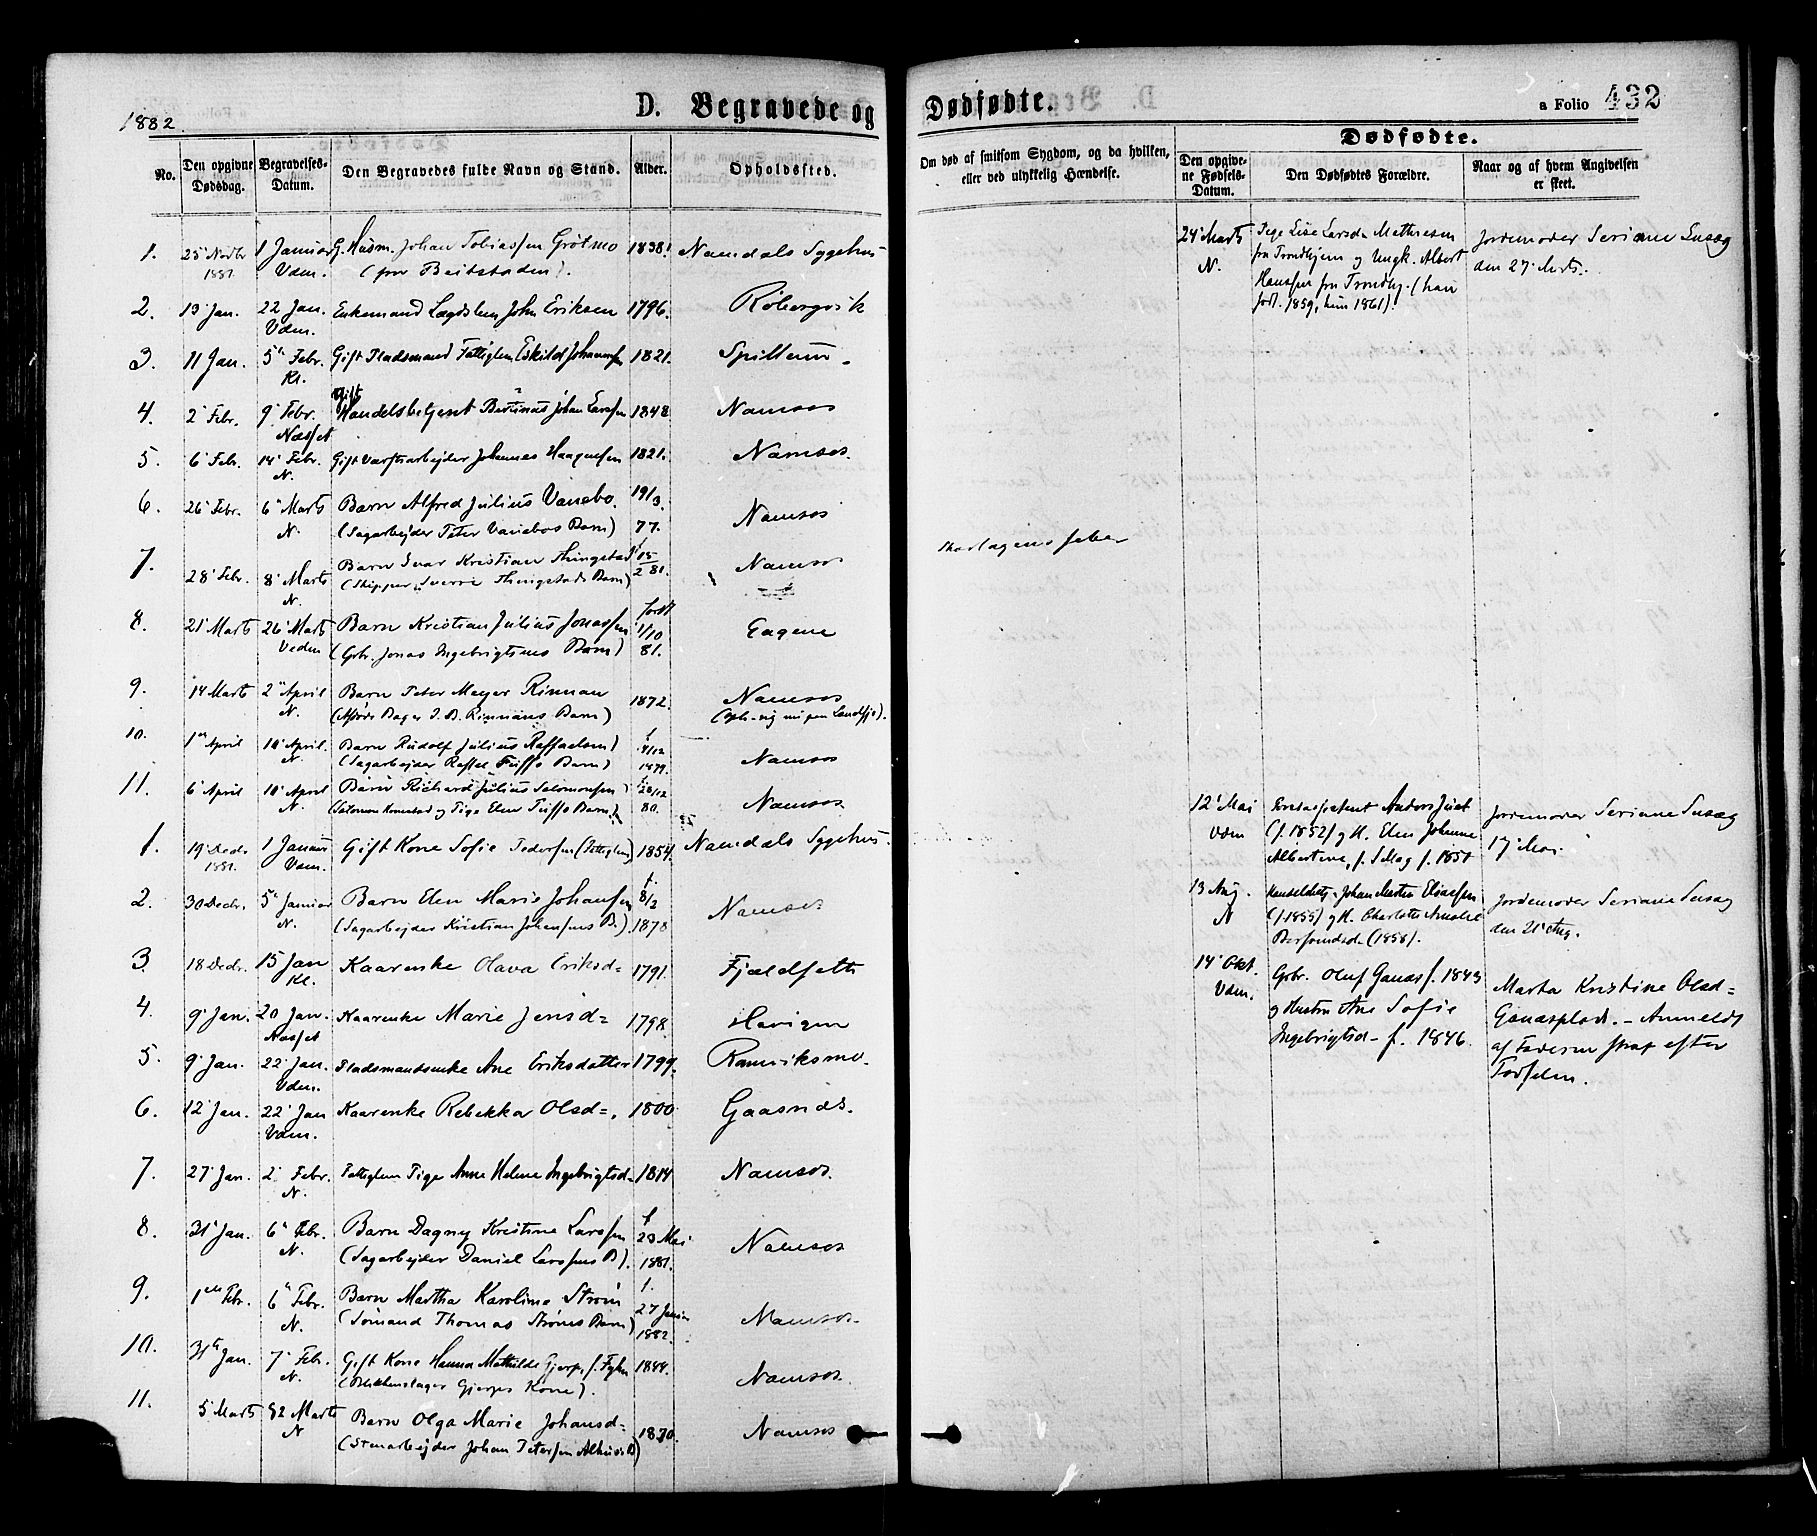 1882.
D. Begravede og
No.
Den opgivne Dødsdag.
Begravelses-Datum.
Den Begravedes fulde Navn og Stand.
Alder.
Opholdssted.
1. 25' Novbr 1881. 1 Januar Vdm. G. Husm. Johan Tobiassen Grötmo (fra Beitstaden). 1838. Namdals Sygehus
2. 13' Jan. 22' Jan. Vdm. Enkemand Lægdslem John Eriksen 1796. Röbergvik
3. 11 Jan. 5' Febr. Kl. Gift Pladsmand Fattiglem Eskild Johannsen 1821. Spillum
4. 2' Febr. 9' Febr. Næsset Gift Handelsbetjent Johan Larssen 1848 Namsos
5. 6' Febr. 14' Febr. N. Gift Værftsarbejder Johannes Haagensen 1821. Namsos.
6. 26' Febr. 6' Marts N. Barn Alfred Julius Vanebo. (Sagarbejder Peter Vanebos Barn) 19/3. 77. Namsos
7. 28' Febr. 8' Marts N. Barn Ivar Kristian Thingstad (Skipper Sverre Thingstads Barn) 15/2 81. Namsos
8. 21' Marts 26' Marts Vedm Barn Kristian Julius Jonassen (Gbr. Jonas Ingebrigtsens Barn) født 1/10 81. Gagene
9. 14' Marts 2' April N. Barn Peter Meyer Rinnan (Bager I. B. Rinnans Barn) 1872. Namsos
10. 1' April 10' April. N. Barn Rudolf Julius Raffaelsen (Sagarbejder Raffel Fuffs Barn) f. 4/12 1879. Namsos
11. 6' April 10' April N. Barn Richard Julius Salomonsen (Salomon og Pige Elen Barn) f. 20/12 80. Namsos
1. 19' Decbr 1881. 1 Januar Vdm. Gift Kone Sofie Pedersen (Fattiglem) 1854. Namdals Sygehus.
2. 30 Decbr. 5' Januar N. Barn Elen Marie Johansen (Sagarbejder Kristian Johansens B.) f. 8/2 1878 Namsos
3. 18' Decbr. 15' Jan Kl. Kaarenke Olava Eriksd= 1791. Fjældsett
4. 9' Jan. 20' Jan. Næsset Kaarenke Marie Jensd= 1798. Havigen
5. 9' Jan. 22' Jan. Vdm. Pladsmandsenke Ane Eriksdatter 1799. Ramviksmo.
6. 12' Jan. 22' Jan Vdm. Kaarenke Rebekka Olsd=, 1800 Gaasnæs.
7. 27' Jan. 2' Febr. N. Fattiglem Pige Anne Helene Ingebrigtsd= 1814 Namsos.
8. 31' Jan. 6' Febr. N. Barn Dagny Kristine Larssen (Sagarbejder Daniel Larssens B). f 23 Mai 1881. Namsos
9. 1' Febr. 6' Febr. N. Barn Martha Karoline Ström (Sömand Thomas Ströms Barn) f. 27 Januar 1882. Namsos.
10. 31' Jan. 7' Febr. N. Gift Kone Hanna Mathilde Gjerp, f. (Blikkenslager Gjerps Kone). 1844. Namsos.
11. 5' Marts 12 Marts N Barn Olga Marie Johansd= (Stenarbejder Johan Petersen B) 1870. Namsos
Dødfødte.
a Folio 432
Om død af smitsom Sygdom, og da hvilken, eller ved ulykkelig Hændelse.
Dødfødte.
Den opgivne Fødsels-Datum.
Den Dødfødtes Forældre.
Naar og af hvem Angivelsen er skeet.
Skarlagensfeber
24' Marts N. Pige Lise Larsd= Mathiesen fra Trondhjem og Ungk. Albert Hanssen fra Trondhj. (han föd. 1859, hun 1861). Jordemoder Seriane Susæg den 27' Marts.
12' Mai Vdm Anders Juul (f. 1852) og H. Elen Johanne Albertine, f. f. 1851 Jordemoder Seriane Susæg 17' Mai
13 Aug. N Johan Martin Eliassen (f. 1855) og H. Charlotte Amalie (1858). Jordemoder Seriane Susæg den 21' Aug.
14' Okt. Vdm. Gbr. Oluf Ganæs f. 1843 og Hustru Ane Sofie Ingebrigtsd= f. 1846. Marta Kristine Olsd= Ganæsplads. - Anmeldt af Faderen strax efter Fødselen.